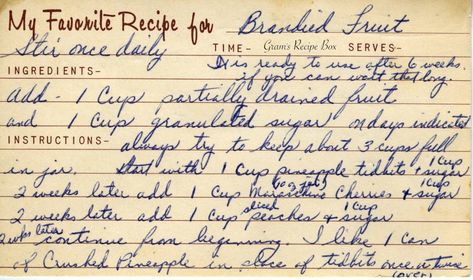 My Favorite Recipe for Brandied Fruit
Stir once daily TIME- Gram's Recipe Box SERVES-
It is ready to use after 6 weeks.
INGREDIENTS- if you can wait that long.
add - 1 Cup partially drained fruit
and 1 Cup granulated sugar on days indicated
INSTRUCTIONS- always try to keep about 3 cups full
in jar. Start with 1 Cup pineapple tidbits + 1 Cup sugar
2 weeks later add 1 Cup Maraschino Cherries + 1 Cup sugar
2 weeks later add 1 Cup sliced peaches + 1 Cup sugar
2 wks later continue from beginning. I like 1 Can
of Crushed Pineapple in place of tidbits once or twice
(over)